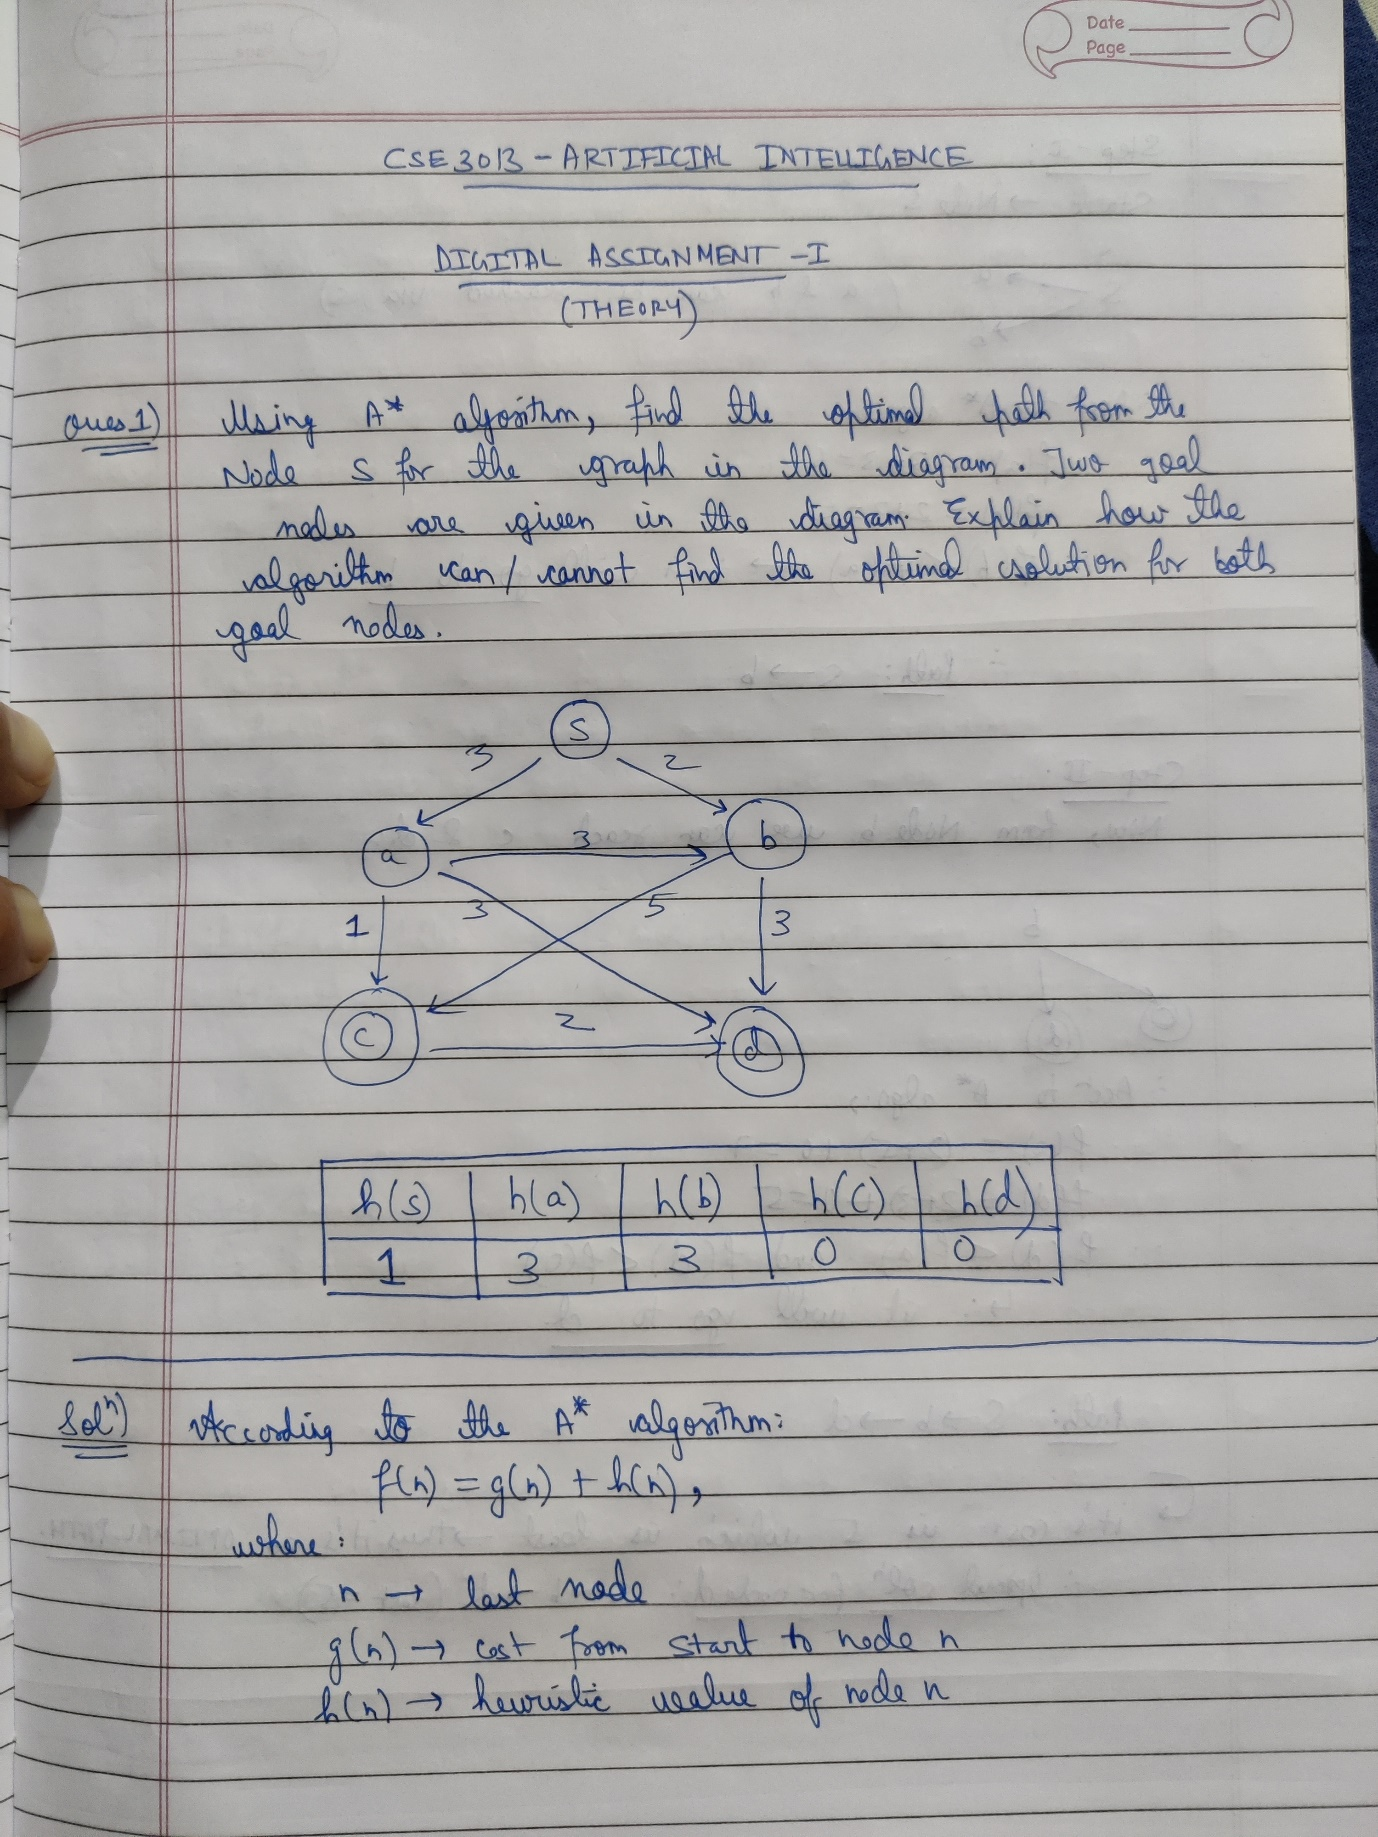 Date
Page
CSE3013 - ARTIFICIAL INTELLIGENCE
DIGITAL ASSIGNMENT - I
(THEORY)
Ques 1) Using A* algorithm, find the optimal path from the
Node S for the graph in the diagram. Two goal
nodes are given in the diagram. Explain how the
algorithm can / cannot find the optimal solution for both
goal nodes.
S
3 2
a 3 b
1 3 5 3
c 2 d
h(s) h(a) h(b) h(c) h(d)
1 3 3 0 0
Solⁿ) According to the A* algorithm:
f(n) = g(n) + h(n),
where:
n → last node
g(n) → cost from start to node n
h(n) → heuristic value of node n